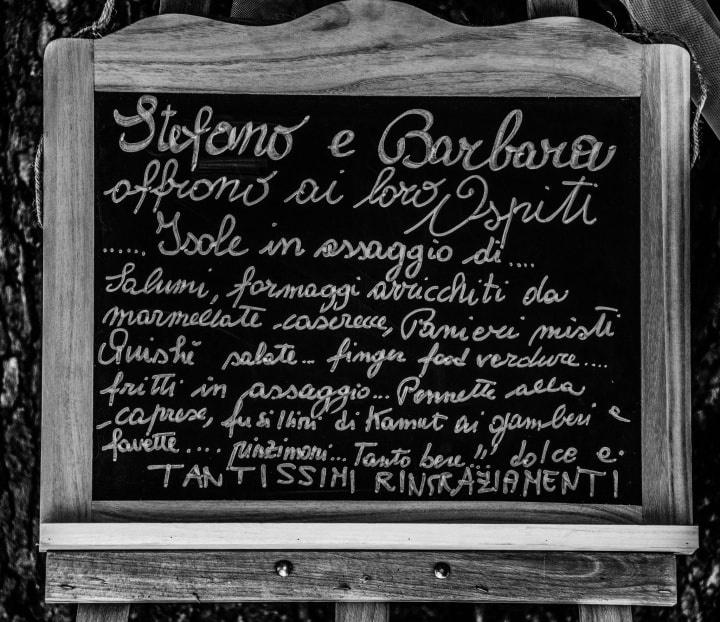 Stefano e Barbara
offrono ai loro Ospiti
...... Isole in assaggio di....
Salumi, formaggi arricchiti da
marmellate caserecce, Panieri misti
Quishè salate... finger food verdure....
fritti in assaggio... Pennette alla
caprese, fusillini di Kamut ai gamberi e
favette..... pinzimoni... Tanto bere...!! dolce e.
TANTISSIMI RINGRAZIAMENTI